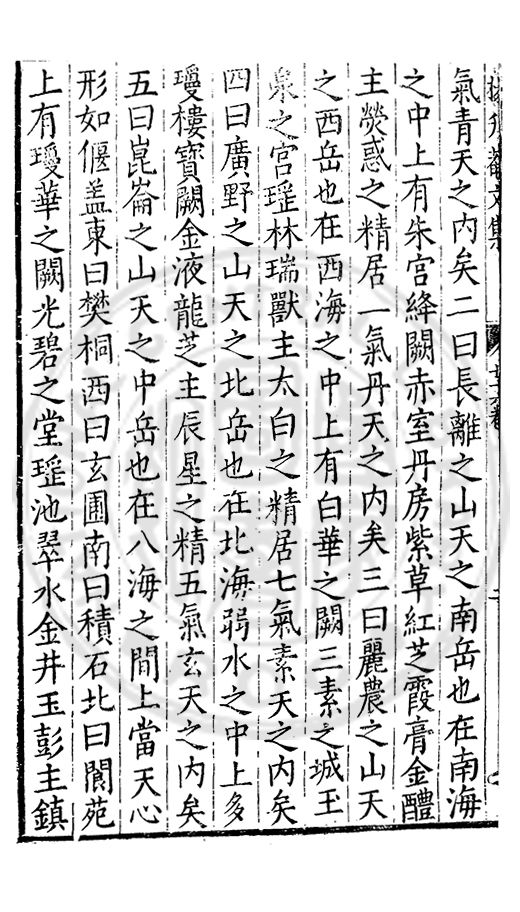 氣青天之內矣二曰長離之山天之南岳也在南海
之中上有朱宮絳闕赤室丹房紫草紅芝霞膏金醴
主熒惑之精居一氣丹天之內矣三曰麗農之山天
之西岳也在西海之中上有白華之闕三素之城玉
泉之宮瑶林瑞獸主太白之精居七氣素天之內矣
四曰廣野之山天之北岳也在北海弱水之中上多
瓊樓寶闕金液龍芝主辰星之精五氣玄天之內矣
五曰崑崙之山天之中岳也在八海之間上當天心
形如偃盖東曰樊桐西曰玄圃南曰積石北曰閬苑
上有瓊華之闕光碧之堂瑶池翠水金井玉彭主鎮